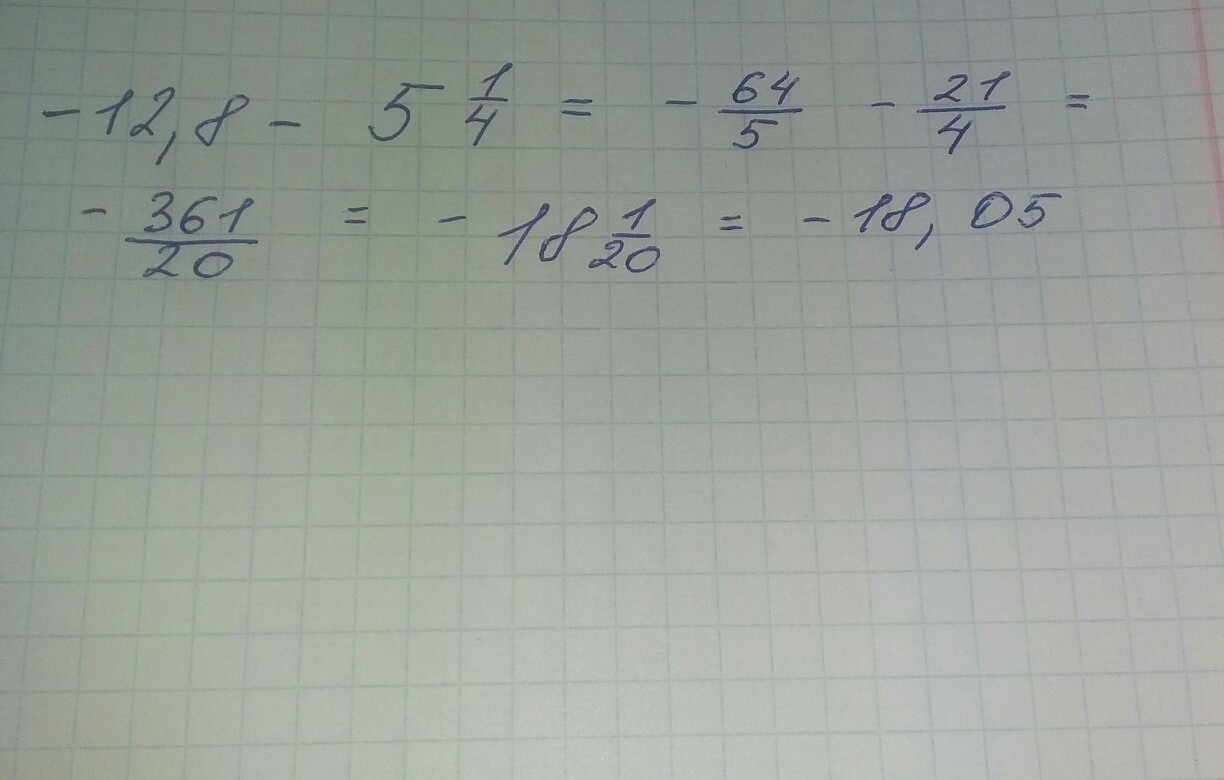 -12,8 - 5 1/4 = - 64/5 - 21/4 =
- 361/20 = - 18 1/20 = - 18,05